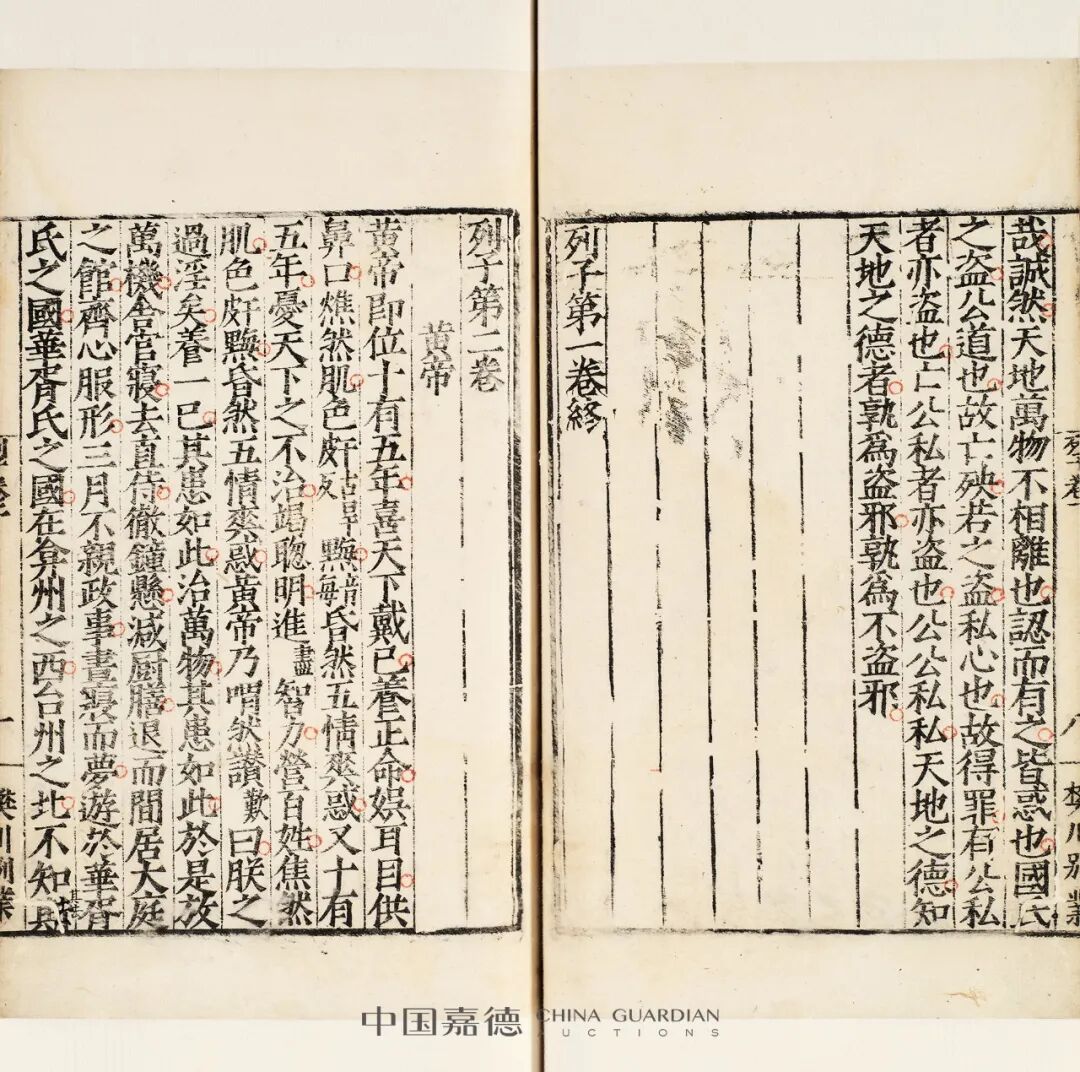 八
樊川别業
哉誠然天地萬物不相離也認而有之皆惑也國氏
之盜公道也故亡殃若之盜私心也故得罪有公私
者亦盜也亡公私者亦盜也公公私私天地之德知
天地之德者孰爲盜邪孰爲不盜邪
列子第一卷終
列子第二卷
黃帝
黃帝即位十有五年喜天下戴己養正命娛耳目供
鼻口燋然肌色皯古旱反黣音每昏然五情爽惑又十有
五年憂天下之不治竭聰明進盡智力營百姓焦然
肌色皯黣昏然五情爽惑黃帝乃喟然讚歎曰朕之
過淫矣養一己其患如此治萬物其患如此於是放
萬機舍宮寢去直侍徹鐘懸減厨膳退而間居大庭
之館齊心服形三月不親政事晝寢而夢遊於華胥
氏之國華胥氏之國在弇州之西台州之北不知
中国嘉德 CHINA GUARDIAN
AUCTIONS